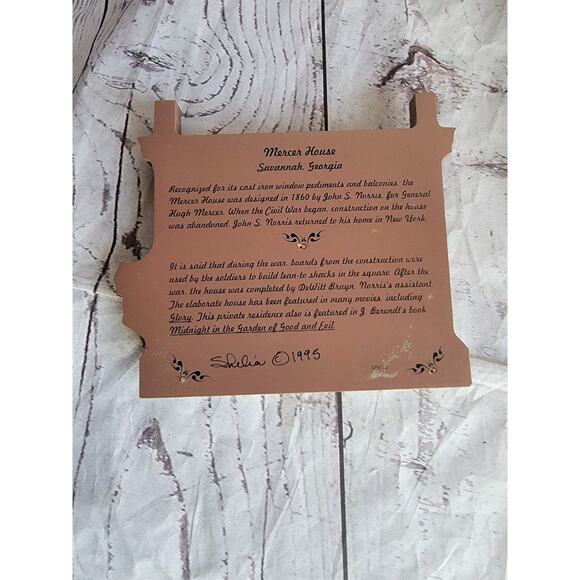 Mercer House
Savannah, Georgia
Recognized for its cast iron window pediments and balconies, the
Mercer House was designed in 1860 by John S. Norris, for General
Hugh Mercer. When the Civil War began, construction on the house
was abandoned. John S. Norris returned to his home in New York.
It is said that during the war, boards from the construction were
used by the soldiers to build lean-to shacks in the square. After the
war, the house was completed by DeWitt Bruyn, Norris's assistant.
The elaborate house has been featured in many movies, including
Glory. This private residence also is featured in J. Berendt's book,
Midnight in the Garden of Good and Evil.
Shelia ©1995